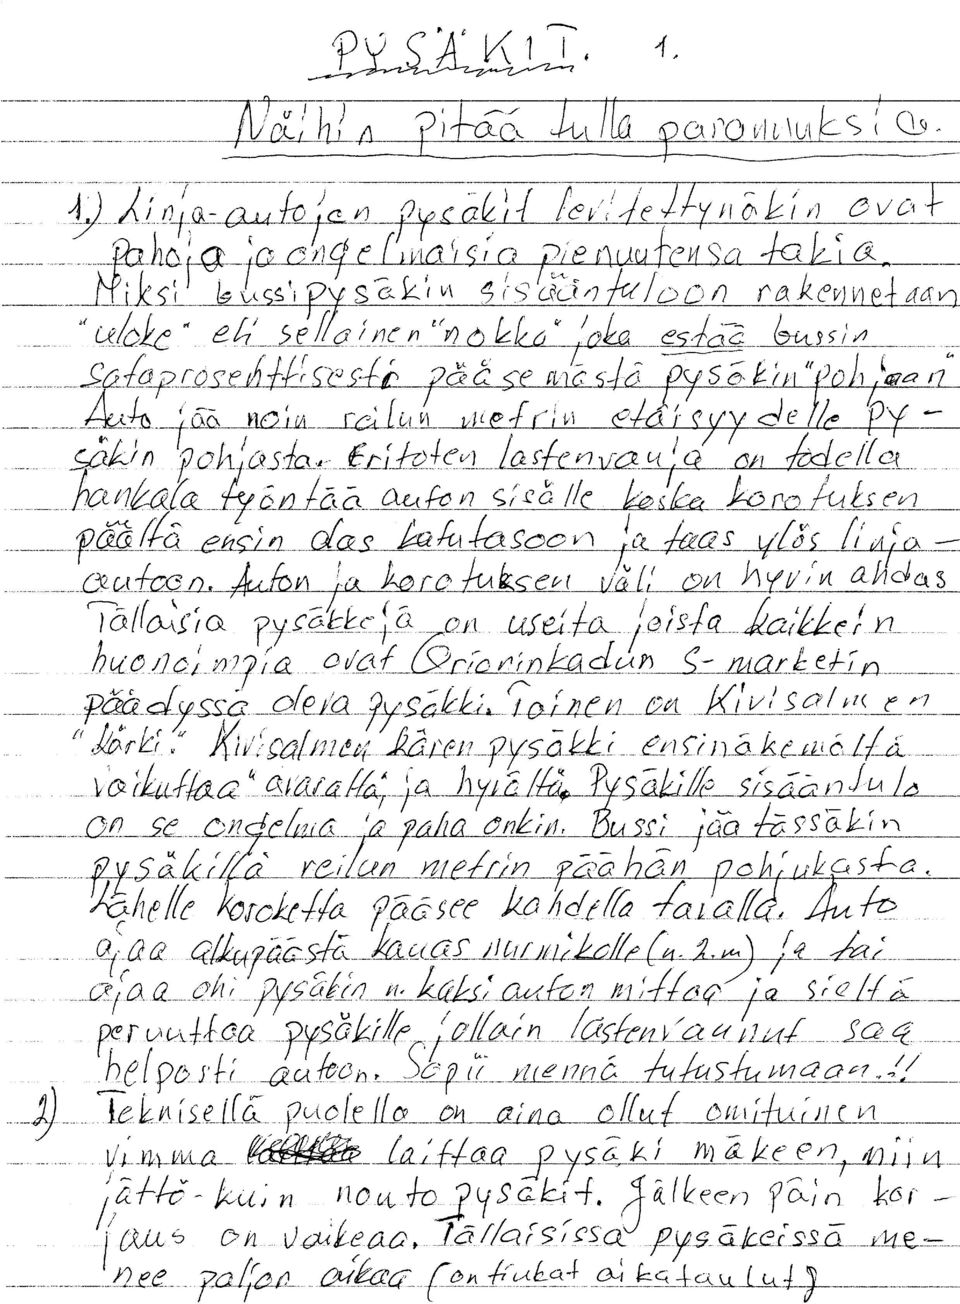 PYSÄKIT. 1.
Näihin pitää tulla parannuksia.
1.) Linja-autojen pysäkit levitettynäkin ovat
pahoja ja ongelmaisia pienuutensa takia.
Miksi bussipysäkin sisääntuloon rakennetaan
"uloke" eli sellainen "nokka" joka estää bussin
sataprosenttisesti pääsemästä pysäkin "pohjaan"
Auto jää noin reilun metrin etäisyydelle py-
säkin pohjasta. Eritoten lastenvauja on todella
hankala työntää auton sisälle koska korotuksen
päältä ensin alas katutasoon ja taas ylös linja-
autoon. Auton ja korotuksen väli on hyvin ahdas
Tällaisia pysäkkejä on useita joista kaikkein
huonoimpia ovat Orioninkadun S-marketin
päädyssä oleva pysäkki. Toinen on Kivisalmen
"kärki." Kivisalmen kären pysäkki ensinäkemältä
vaikuttaa "avaralta", ja hyvältä. Pysäkille sisääntulo
on se ongelma ja paha onkin. Bussi jää tässäkin
pysäkillä reilun metrin päähän pohjukasta.
Lähelle koroketta pääsee kahdella tavalla. Auto
ajaa alkupäästä kauas nurmikolle (n. 2. m) ja tai
ajaa ohi pysäkin n. kaksi auton mittaa ja sieltä
peruuttaa pysäkille jollain lastenvaunut saa
helposti autoon. Sopii mennä tutustumaan.!!
2) Teknisellä puolella on aina ollut omituinen
vimma laittaa pysäki mäkeen, niin
jättö-kuin nouto pysäkit. Jälkeen päin kor-
jaus on vaikeaa. Tällaisissa pysäkeissä me-
nee paljon aikaa (on tiukat aikataulut)